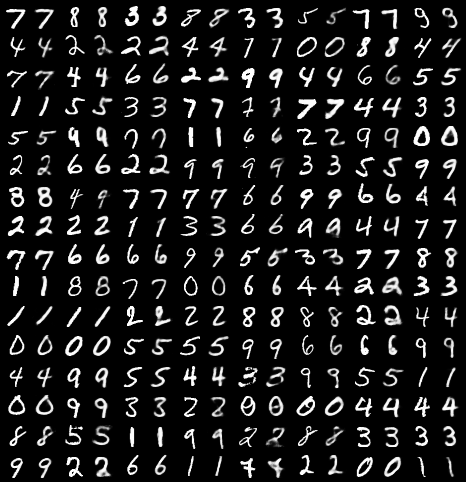 7 7 8 8 3 3 8 8 3 3 5 5 7 7 9 9
4 4 2 2 2 2 4 4 7 7 0 0 8 8 4 4
7 7 4 4 6 6 2 2 9 9 4 4 6 6 5 5
1 1 5 5 3 3 7 7 7 7 7 7 4 4 3 3
5 5 9 9 7 7 1 1 6 6 2 2 9 9 0 0
2 2 6 6 2 2 9 9 9 9 3 3 5 5 9 9
8 8 4 9 7 7 7 7 6 6 9 9 6 6 4 4
2 2 2 2 1 1 3 3 6 6 9 9 4 4 7 7
7 7 6 6 6 6 9 9 5 5 3 3 7 7 8 8
1 1 8 8 7 7 0 0 6 6 4 4 2 2 3 3
1 1 1 1 2 2 2 2 8 8 8 8 2 2 4 4
0 0 0 0 5 5 5 5 9 9 6 6 6 6 9 9
4 4 9 9 5 5 4 4 3 3 9 9 5 5 1 1
0 0 9 9 3 3 2 2 0 0 0 0 4 4 4 4
8 8 5 5 1 1 9 9 2 2 8 8 3 3 3 3
9 9 2 2 6 6 1 1 7 7 2 2 0 0 1 1